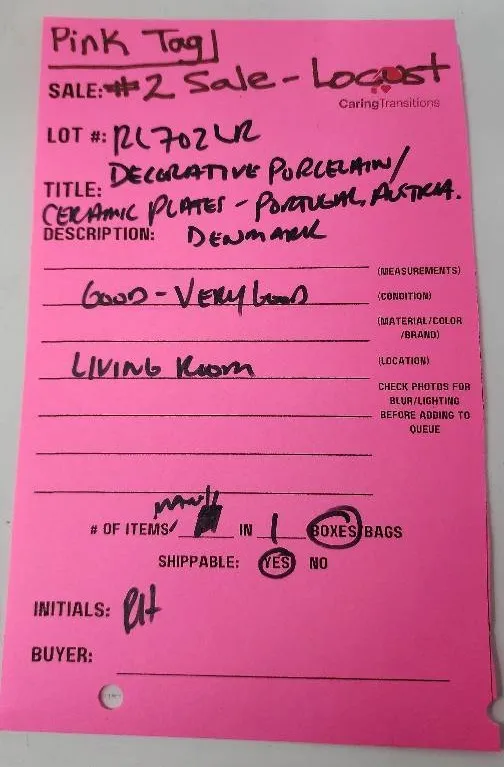 Pink Tag
SALE: #2 Sale - Locust
CaringTransitions
LOT #: RL702LR
TITLE: DECORATIVE PORCELAIN/
CERAMIC PLATES - PORTUGAL, AUSTRIA.
DESCRIPTION: DENMARK
(MEASUREMENTS)
GOOD - VERY GOOD (CONDITION)
(MATERIAL/COLOR
/BRAND)
LIVING ROOM (LOCATION)
CHECK PHOTOS FOR
BLUR/LIGHTING
BEFORE ADDING TO
QUEUE
# OF ITEMS IN 1 BOXES/BAGS
SHIPPABLE: YES NO
INITIALS: RH
BUYER: